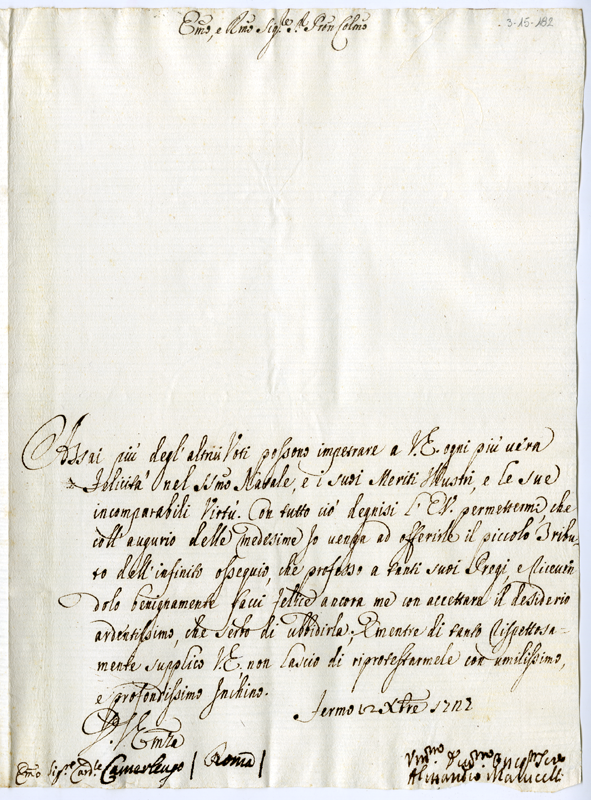 3-15-182
Emo, e Rmo Sig.re S.r Pron Colmo
Assai più degl'altrui Voti possono impetrare a V.E. ogni più vera
felicità nel SSmo Natale, e i suoi Meriti Illustri, e le sue
incomparabili Virtù. Con tutto ciò degnisi l'E.V. permettermi, che
coll'augurio delle medesime Io venga ad offerirle il piccolo Tribu-
to dell'infinito ossequio, che professo a tanti suoi Pregi, e Riceven
dolo benignamente facci felice ancora me con accettarne il desiderio
ardentissimo, che serbo di ubbidirla; E mentre di tanto Rispettosa-
mente supplico V.E. non lascio di riprotestarmele con umilissimo,
e profondissimo Inchino.
Fermo 12 Xbre 1722
D. V. Emza
Emo Sig.re Card.le Camerlengo / Roma /
Alessandro Marucelli